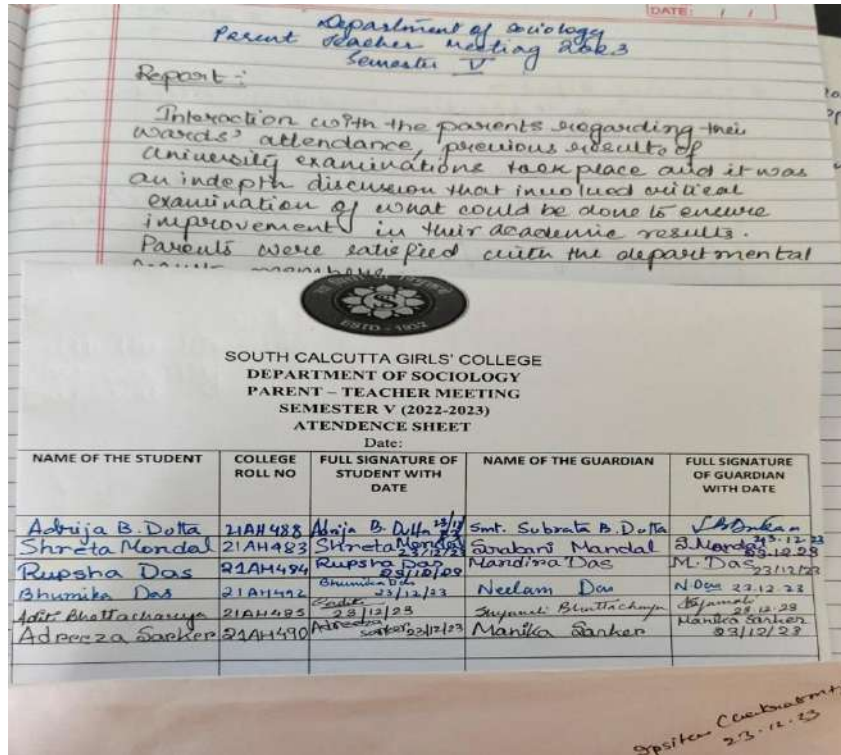 DATE: / /
Department of Sociology
Parent Teacher Meeting 2023
Semester V
Report:
Interaction with the parents regarding their
wards' attendance, previous results of
university examinations took place and it was
an indepth discussion that involved critical
examination of what could be done to ensure
improvement in their academic results.
Parents were satisfied with the departmental
ESTD - 1932
SOUTH CALCUTTA GIRLS' COLLEGE
DEPARTMENT OF SOCIOLOGY
PARENT – TEACHER MEETING
SEMESTER V (2022-2023)
ATENDENCE SHEET
Date:
NAME OF THE STUDENT COLLEGE ROLL NO FULL SIGNATURE OF STUDENT WITH DATE NAME OF THE GUARDIAN FULL SIGNATURE OF GUARDIAN WITH DATE
Adrija B. Dutta 21AH488 Adrija B. Dutta 23/12 Smt. Subrata B. Dutta 23.12.23
Shreta Mondal 21AH483 Shreta Mondal 23/12/23 Srabani Mandal S. Mondal 23.12.23
Rupsha Das 21AH484 Rupsha Das 23/12/23 Mandira Das M. Das 23/12/23
Bhumika Das 21AH492 Bhumika Das 23/12/23 Neelam Das N. Das 23.12.23
Aditi Bhattacharya 21AH485 23/12/23 Bhattacharya 23.12.23
Adreeza Sarker 21AH490 Adreeza Sarker 23/12/23 Manika Sarker Manika Sarker 23/12/23
Ipsita Chakraborty
23.12.23